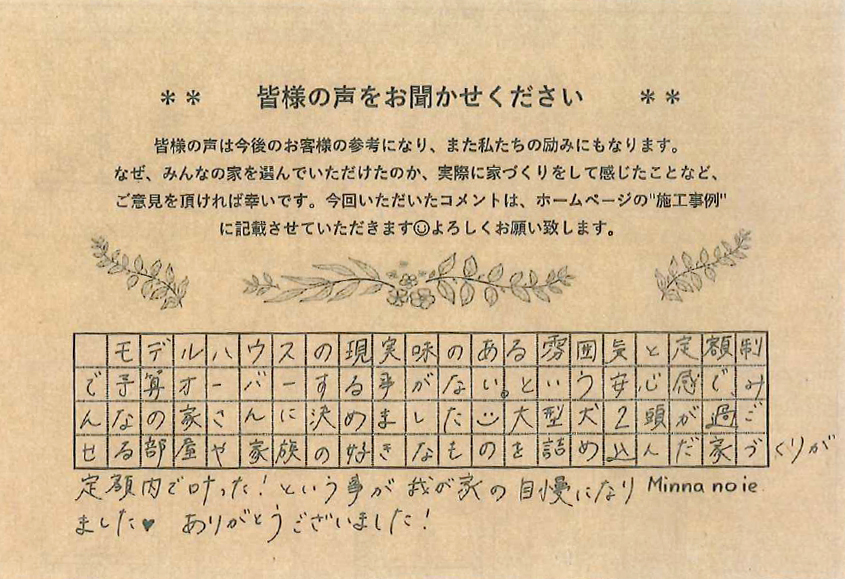 ** 皆様の声をお聞かせください **
皆様の声は今後のお客様の参考になり、また私たちの励みにもなります。
なぜ、みんなの家を選んでいただけたのか、実際に家づくりをして感じたことなど、
ご意見を頂ければ幸いです。今回いただいたコメントは、ホームページの"施工事例"
に記載させていただきます☺よろしくお願い致します。
モデルハウスの現実味のある雰囲気と定額制
で予算オーバーする事がない。という安心感で、み
んなの家さんに決めました☺大型犬2頭が過ご
せる部屋や家族の好きなものを詰め込んだ家づくりが
定額内で叶った!という事が我が家の自慢になり
ました♥ ありがとうございました!
Minna no ie